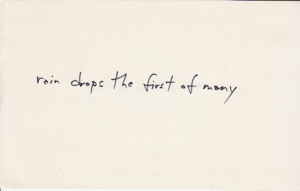 rain drops the first of many